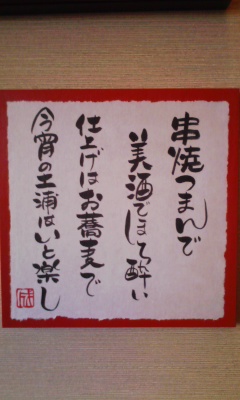 串焼つまんで
美酒でほろ酔い
仕上げはお蕎麦で
今宵の土浦はいと楽し